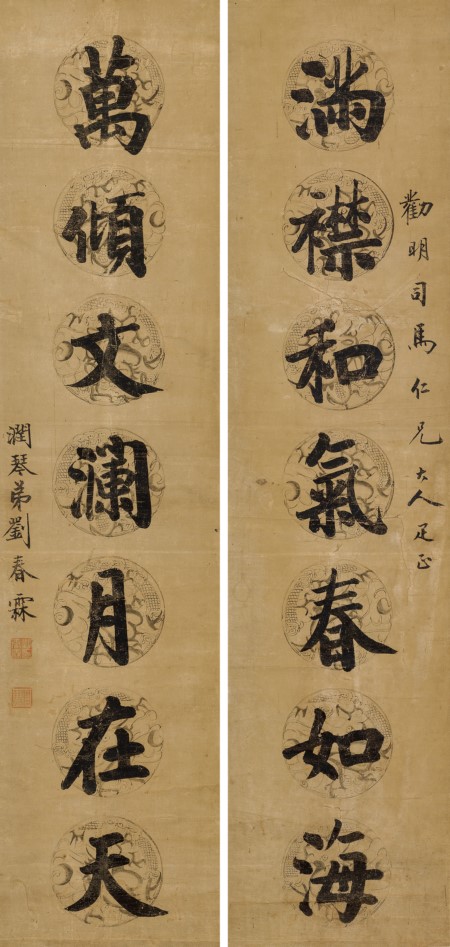 勸明司馬仁兄大人疋正
滿襟和氣春如海
萬傾文瀾月在天
潤琴弟劉春霖